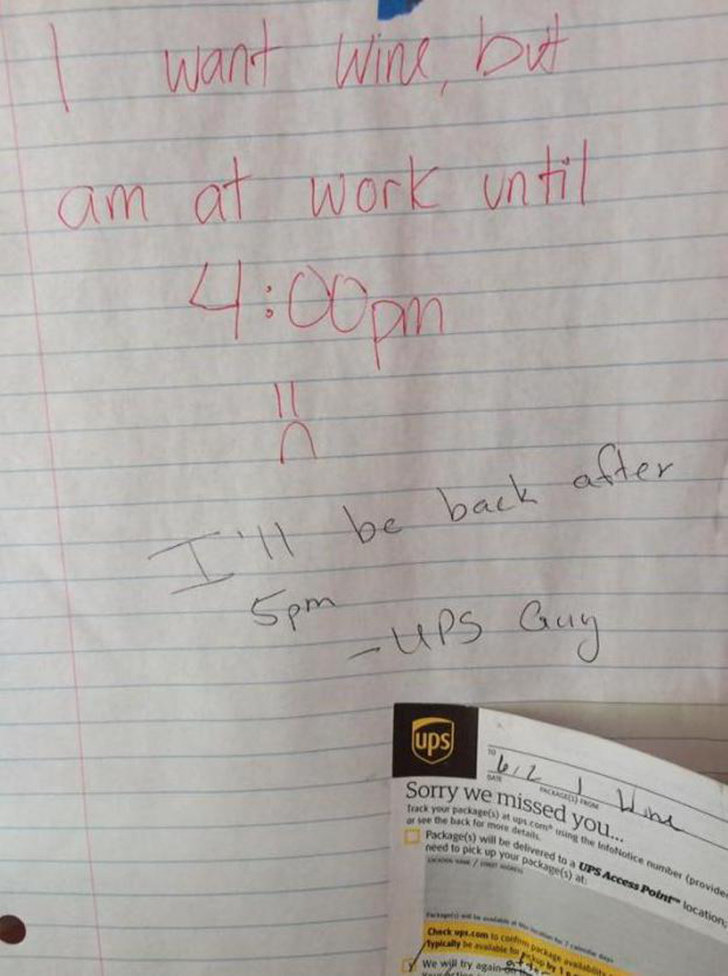 I want wine, but
am at work until
4:00pm
I'll be back after
5pm
- UPS Guy
ups
TO
6/2 1 Wine
DATE PACKAGE(S) FROM
Sorry we missed you...
Track your package(s) at ups.com® using the InfoNotice number (provided
or see the back for more details.
Package(s) will be delivered to a UPS Access Point™ location;
need to pick up your package(s) at:
Check ups.com to confirm package
Typically be available for pickup by
We will try again